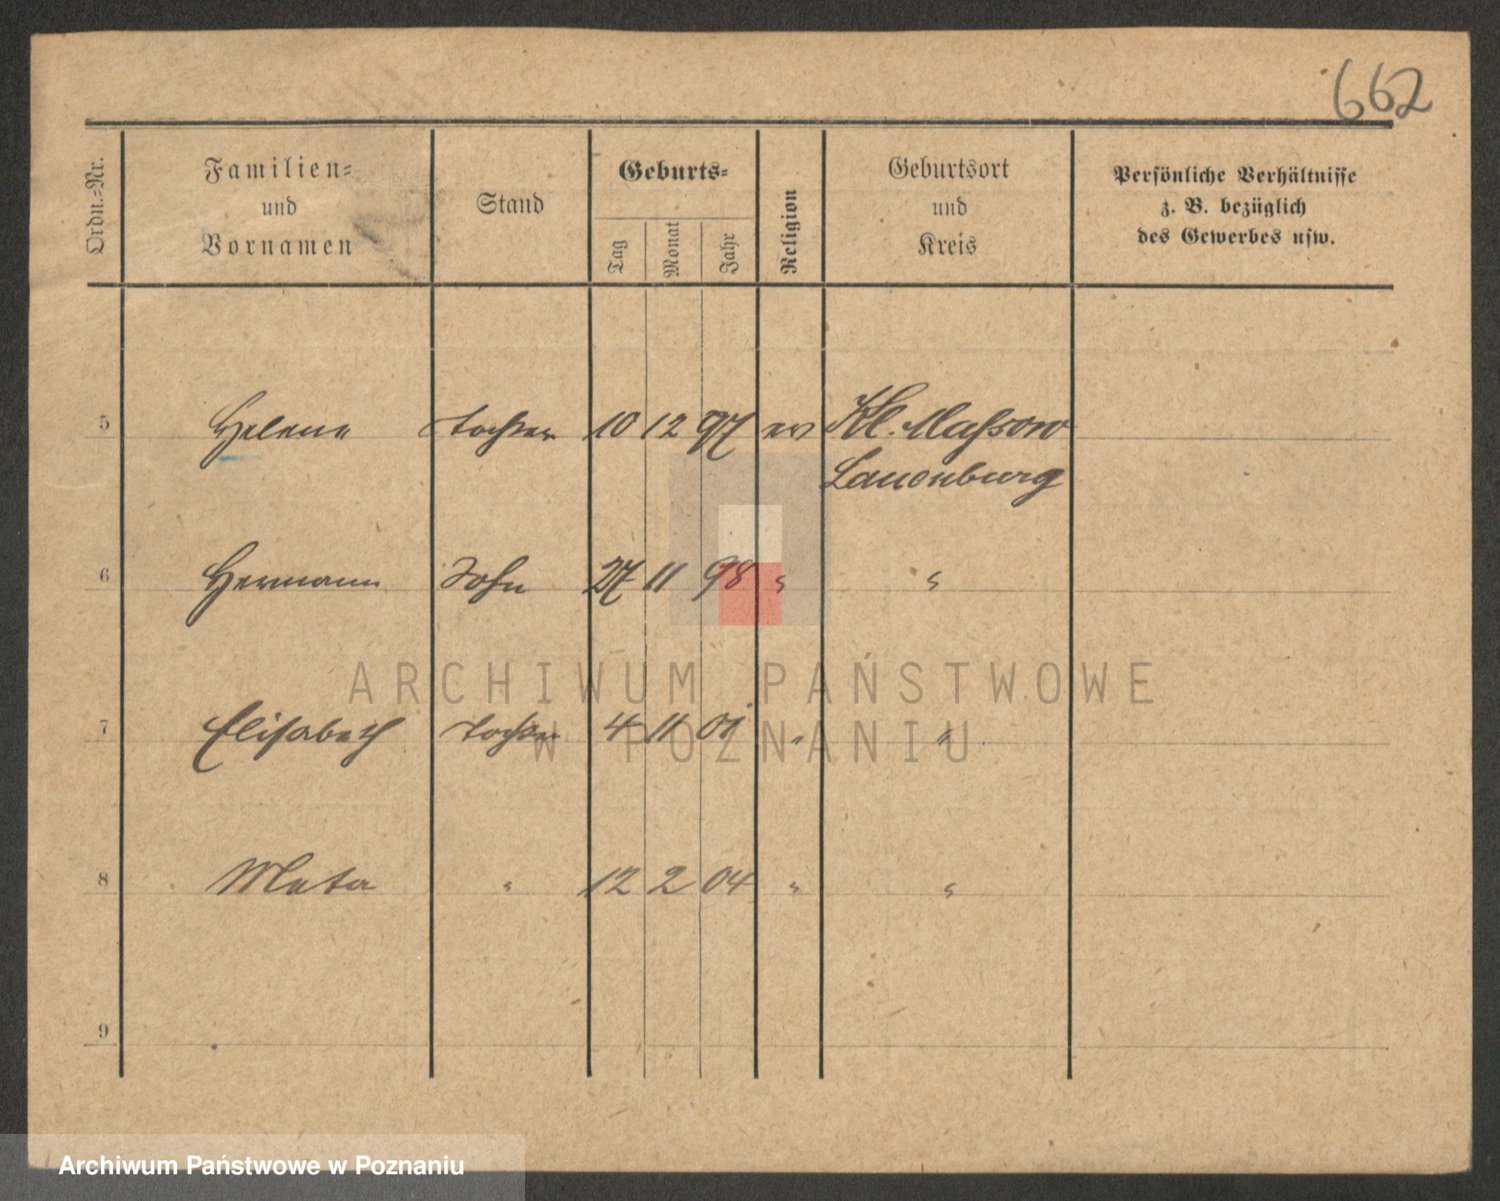 662
Ordn.-Nr.
Familien-
und
Vornamen
Stand
Geburts-
Tag
Monat
Jahr
Religion
Geburtsort
und
Kreis
Persönliche Verhältnisse
z. B. bezüglich
des Gewerbes usw.
5 Helene Tochter 10 12 97 ev Kl. Massow
Lauenburg
6 Hermann Sohn 27 11 98 " "
7 Elisabeth Tochter 4 11 01 " "
8 Meta " 12 2 04 " "
9
ARCHIWUM PAŃSTWOWE
W POZNANIU
Archiwum Państwowe w Poznaniu